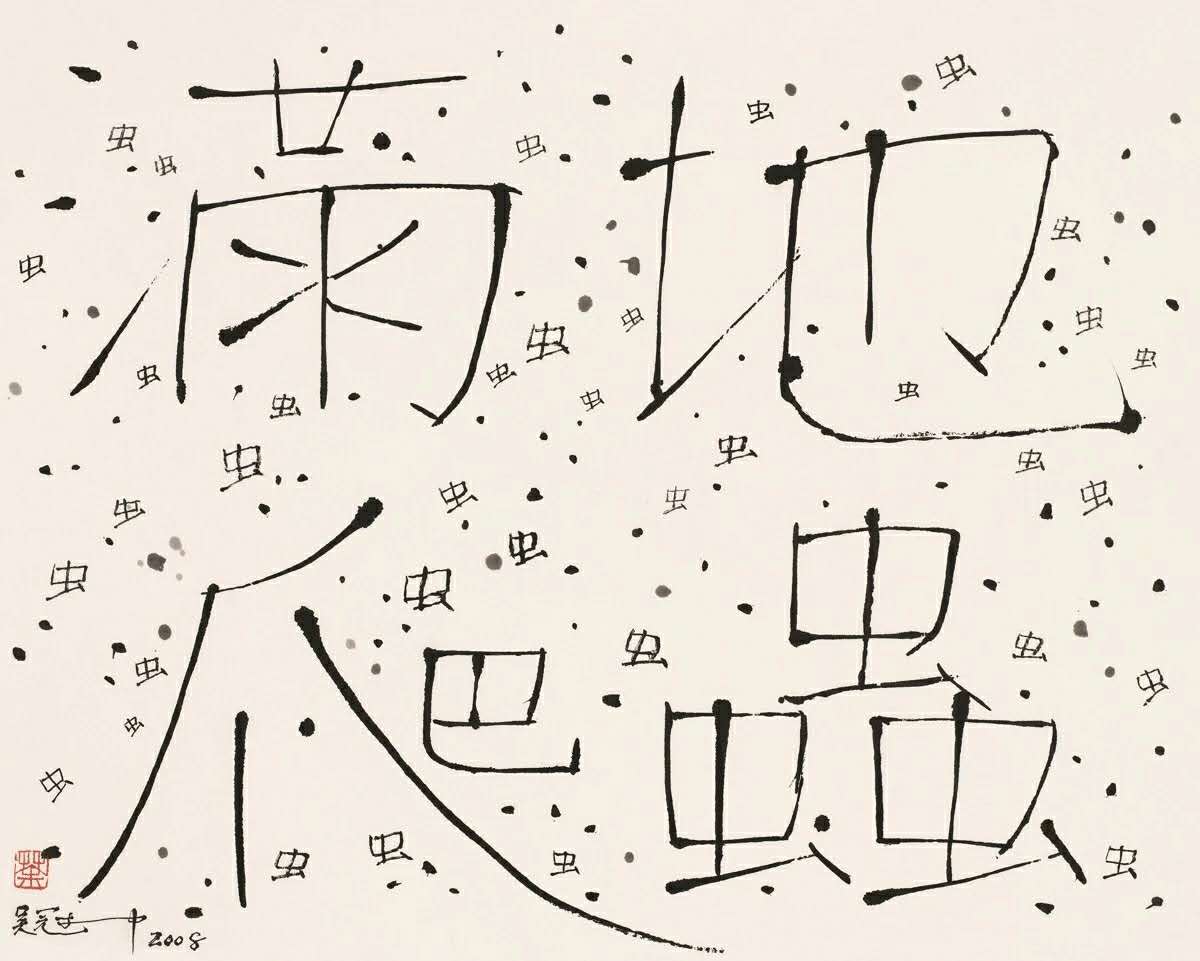 滿地
爬蟲
虫 虫 虫 虫 虫
虫 虫 虫 虫 虫
虫 虫 虫 虫 虫 虫
虫 虫 虫 虫 虫 虫
虫 虫 虫 虫 虫
虫 虫 虫 虫 虫
虫 虫 虫 虫
吴冠中 2008